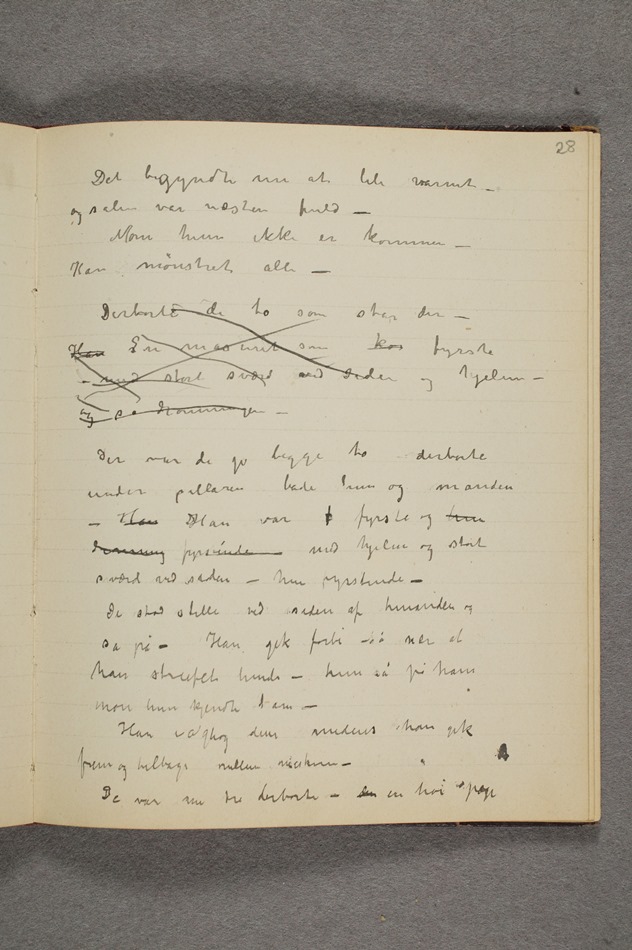 28
Det begyndte nu at bli varmt –
og salen var næsten fuld –
Mon hun ikke er kommen –
Han mønstret alle –
Derborte de to som står der –
Han En maskeret som fyrste
– med stort sværd ved siden og hjelm –
og så dronningen –
Der var de jo begge to derborte
under pillaren både hun og manden
– Han Han var fyrste og hun
dronning fyrstinde med hjelm og stort
sværd ved siden – hun fyrstinde –
De stod stille ved siden af hinanden og
så på – Han gik forbi så nær at
han streifet hende – hun så på ham
mon hun kjendte ham –
Han iagttog dem medens han gik
frem og tilbage mellem maskerne –
De var nu tre derborte – en høi page